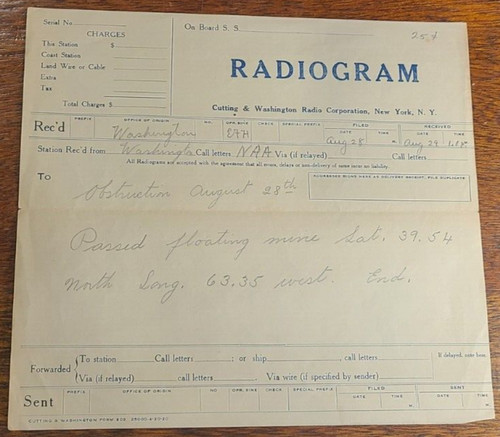 Serial No.
On Board S. S.
25¢
CHARGES
This Station $
Coast Station
Land Wire or Cable
Extra
Tax
Total Charges $
RADIOGRAM
Cutting & Washington Radio Corporation, New York, N. Y.
PREFIX OFFICE OF ORIGIN NO. OPR. SINE CHECK SPECIAL INSTRUCTIONS FILED RECEIVED
DATE TIME DATE TIME
Rec'd Washington Aug 28 Aug 29
Station Rec'd from Washington Call letters NAA Via (if relayed) Call letters
All Radiograms are accepted with the agreement that all errors, delays or non-delivery of same incur no liability.
To
Obstruction August 28th
Passed floating mine Lat. 39.54
North Long. 63.35 west. End.
Forwarded To station Call letters ; or ship call letters If delayed, note here
Via (if relayed) call letters Via wire (if specified by sender)
PREFIX OFFICE OF ORIGIN NO. OPR. SINE CHECK SPECIAL INSTRUCTIONS FILED SENT
DATE TIME DATE TIME
Sent
CUTTING & WASHINGTON FORM